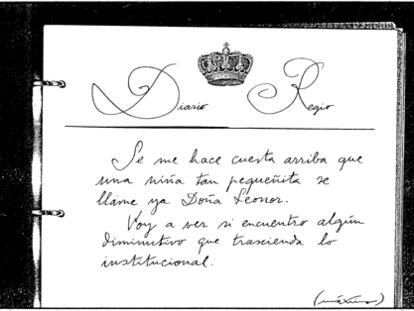 Diario Regio
Se me hace cuesta arriba que
una niña tan pequeñita se
llame ya Doña Leonor.
Voy a ver si encuentro algún
diminutivo que trascienda lo
institucional.
(máximo)